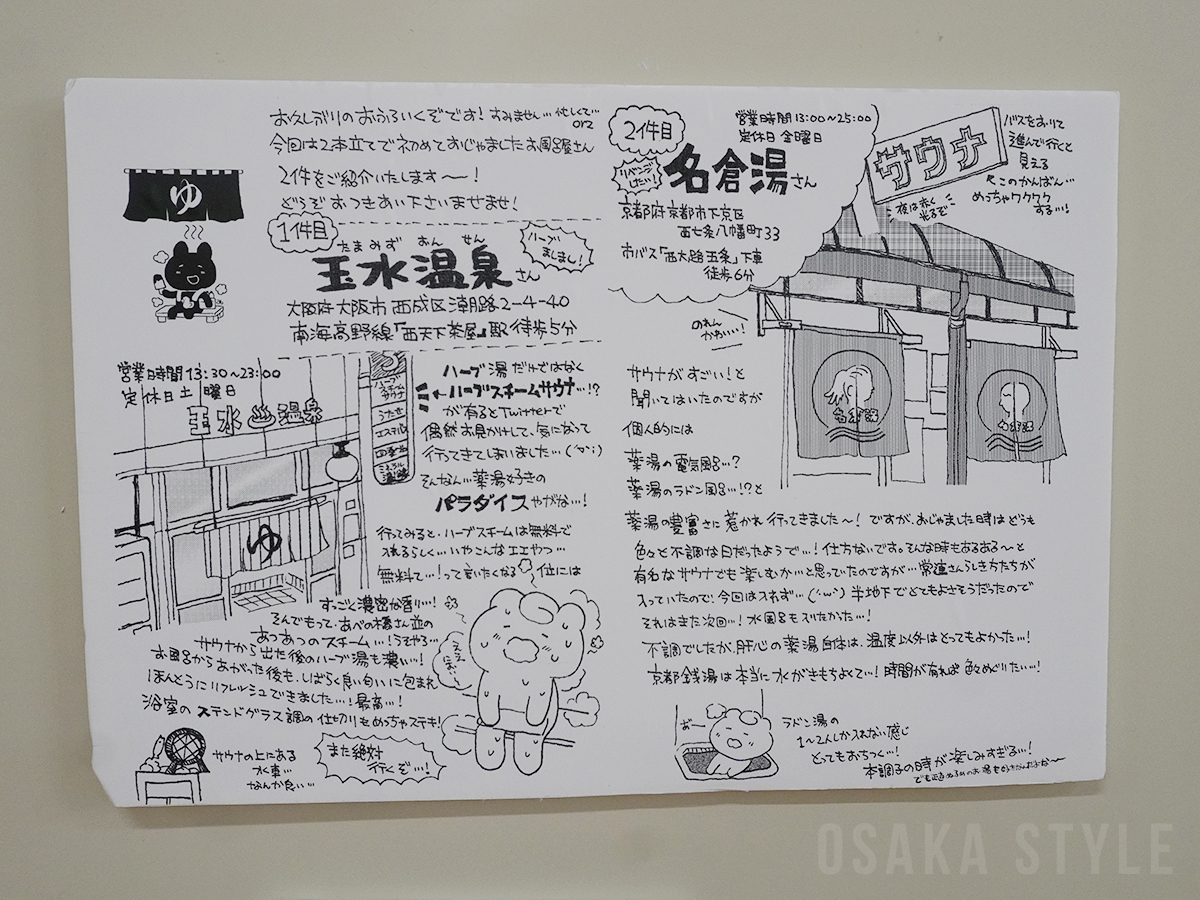 お久しぶりのおふろいくぞです! すみません…忙しくて… orz
今回は2本立てで初めておじゃましたお風呂屋さん
2件をご紹介いたします〜!
どうぞおつきあい下さいませませ!
ゆ
1件目
たまみず おんせん
玉水温泉さん
ハーブましまし!
大阪府大阪市西成区潮路2-4-40
南海高野線『西天下茶屋』駅徒歩5分
営業時間13:30~23:00
定休日土曜日
玉水♨温泉
ゆ
ハーブスチームサウナ
うたせ
ハーブ湯だけではなく
ハーブスチームサウナ…!?
が有るとTwitterで
偶然お見かけして、気になって
行ってきてしまいました…
そんなん…薬湯好きの
パラダイスやがな…!
行ってみると、ハーブスチームは無料で
入れるらしく…いやこんなエエやつ…
無料て…!って言いたくなる位には
すっごく濃密な香り…!
そんでもって、あべの橋さん並の
あつあつのスチーム…!うそやろ…
サウナから出た後のハーブ湯も濃い…!
お風呂からあがった後も、しばらく良い匂いに包まれ
ほんとうにリフレッシュできました…!最高…!
浴室のステンドグラス調の仕切りもめっちゃステキ!
ええにおい…
サウナの上にある
水車…
なんか良い…
また絶対
行くぞ…!
2件目
リベンジしたい!
名倉湯さん
営業時間13:00~25:00
定休日 金曜日
京都府京都市下京区
西七条八幡町33
市バス「西大路五条」下車
徒歩6分
サウナ
バスをおりて
進んで行くと
見える
このかんばん…
めっちゃワクワク
する…!
夜は赤く
光るで
のれん
かわいい!
サウナがすごい!と
聞いてはいたのですが
個人的には
薬湯の電気風呂…?
薬湯のラドン風呂…!?と
薬湯の豊富さに惹かれ行ってきました〜! ですが、おじゃました時はどうも
色々と不調な日だったようで…! 仕方ないです。そんな時もあるある〜と
有名なサウナでも楽しむか…と思っていたのですが…常連さんらしき方たちが
入っていたので、今回は入れず… 半地下でとてもよさそうだったので
それはまた次回…! 水風呂もぶじだった…!
不調でしたが、肝心の薬湯自体は、温度以外はとってもよかった…!
京都銭湯は本当に水がきもちよくて…! 時間が有れば色々めぐりたい…!
お〜
ラドン湯の
1〜2人しか入れない感じ
とってもおちつく…!
本調子の時が楽しみすぎる…!
OSAKA STYLE